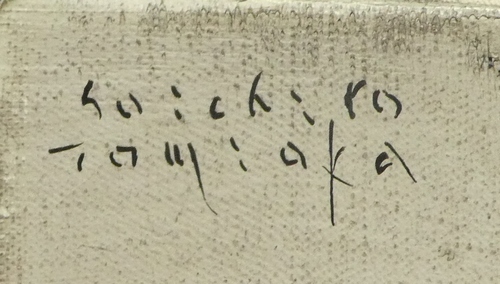 Soichiro
Tomioka